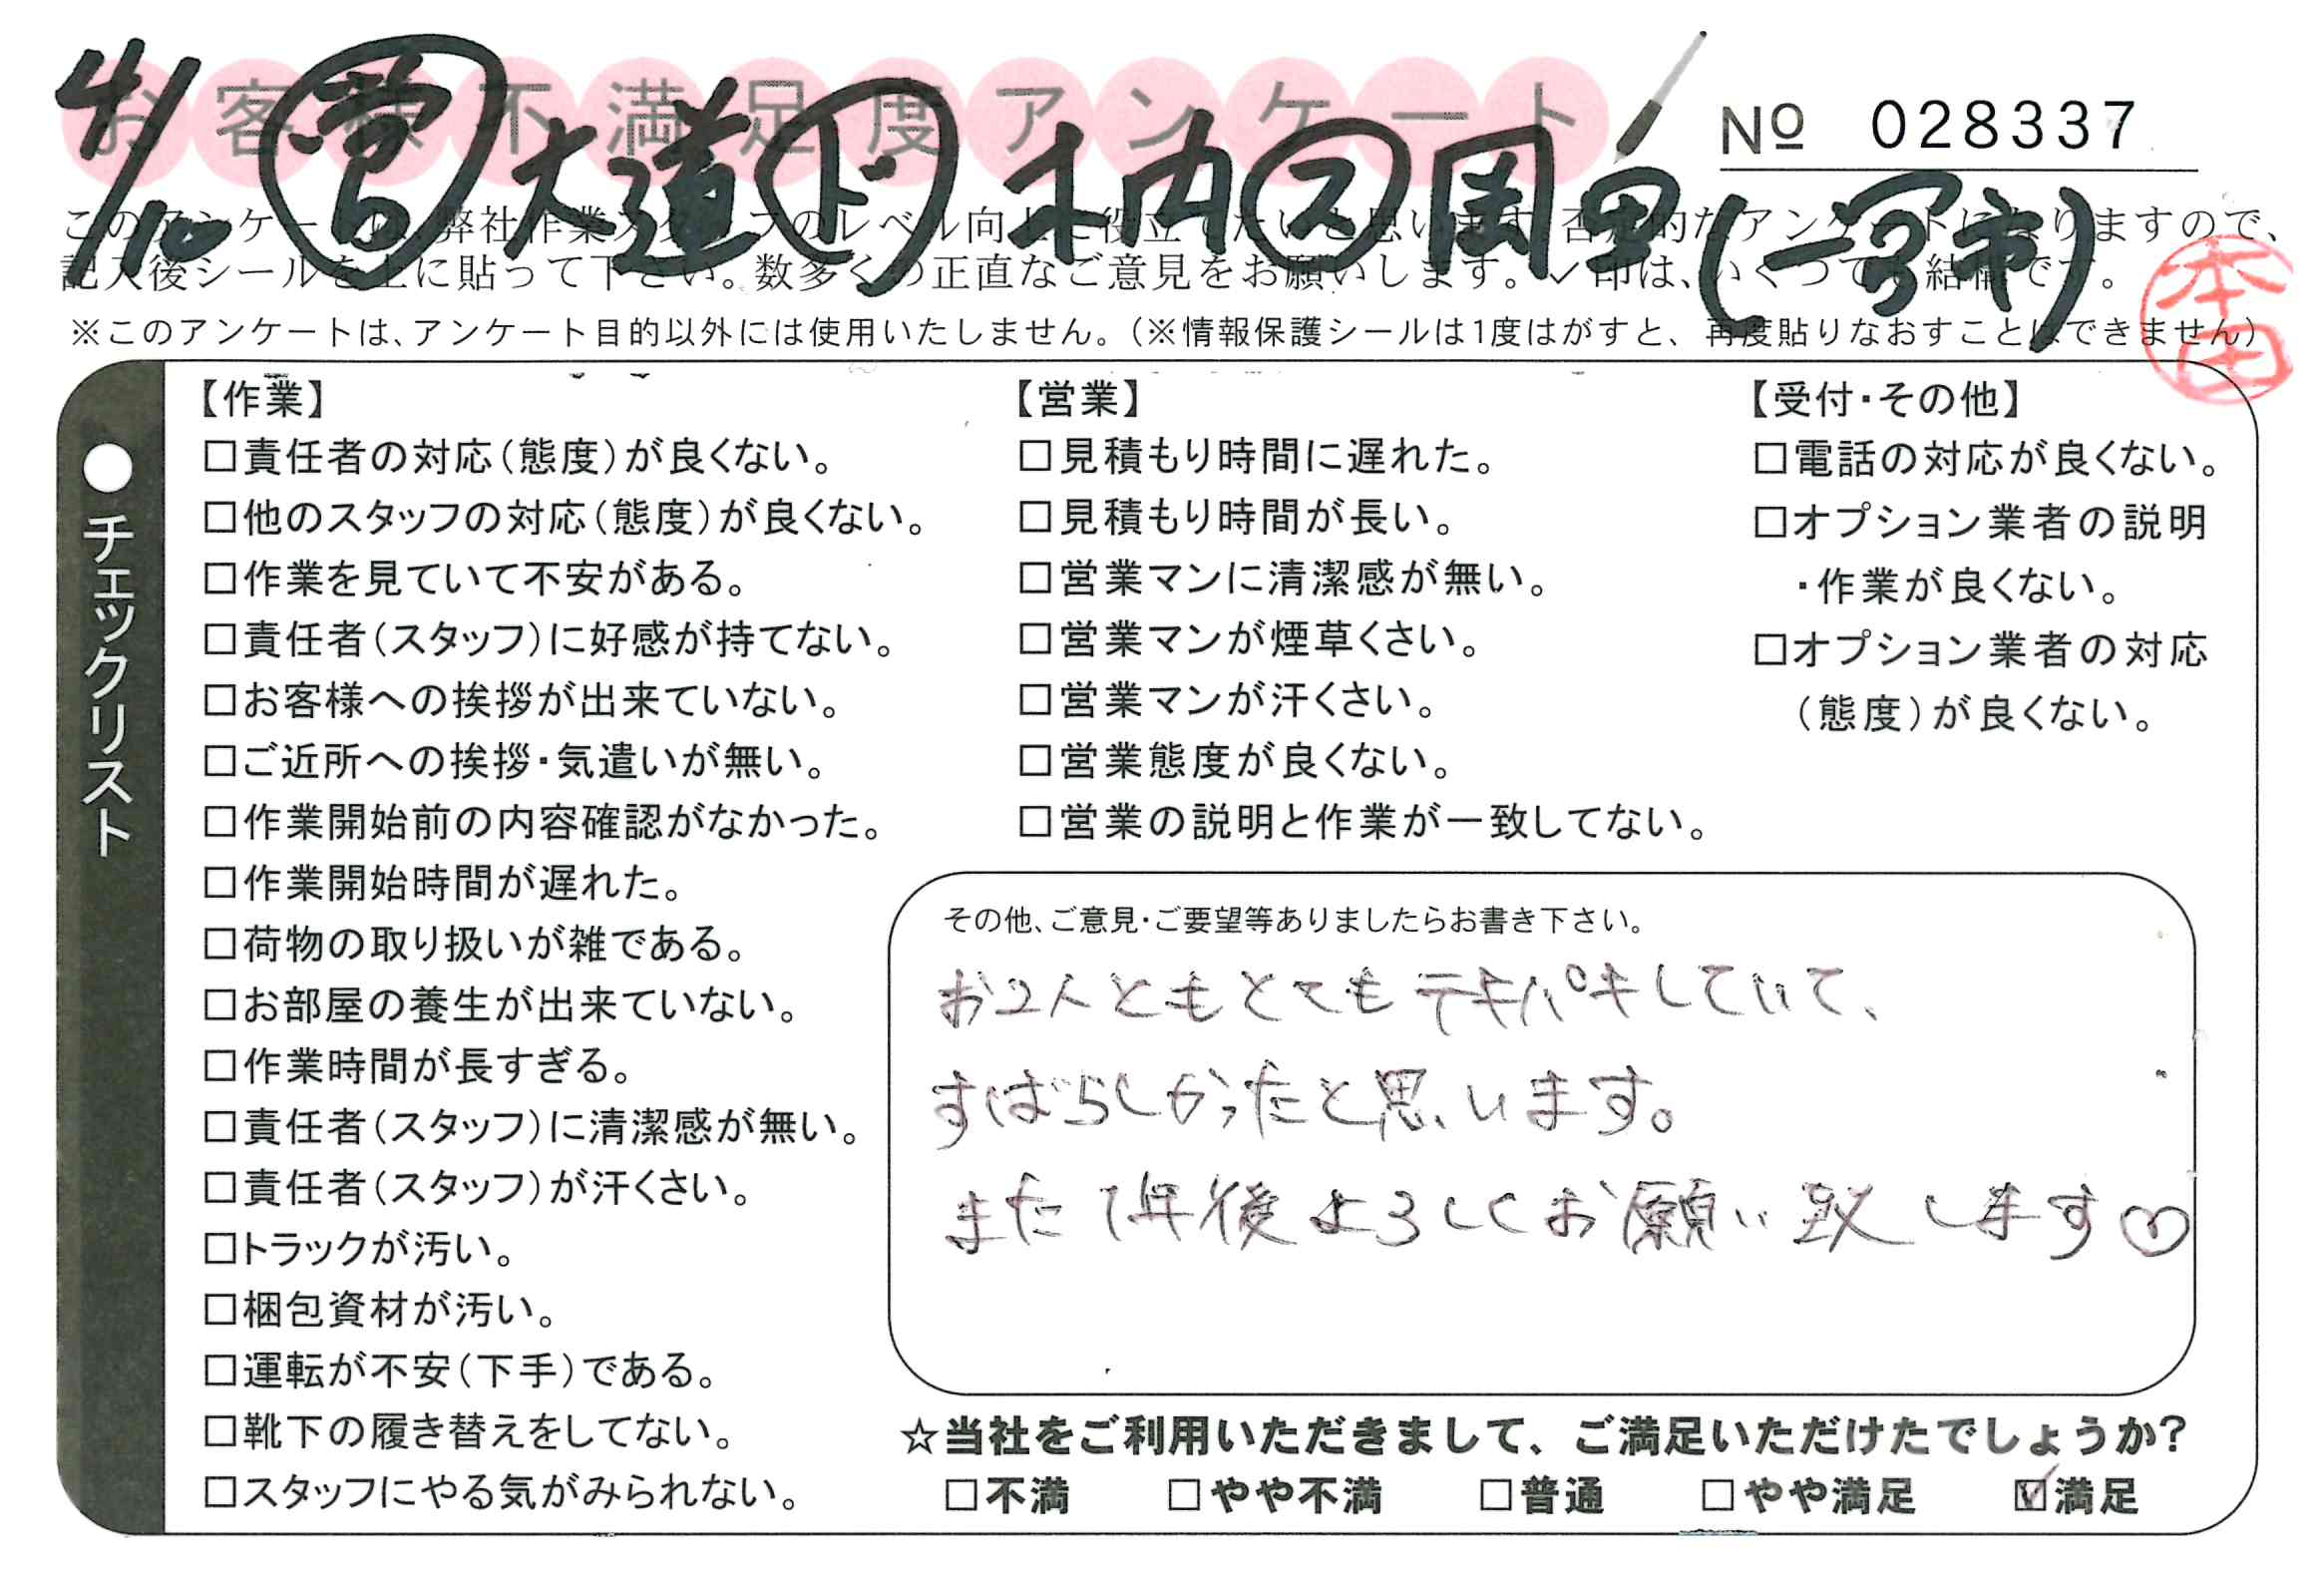 お客様不満足度アンケート
№ 028337
4/10 営 大道 ド 木内 ス 岡田 (一宮市)
このアンケートは、弊社作業スタッフのレベル向上に役立てたいと思います。否定的なアンケートになりますので、
記入後シールを上に貼って下さい。数多くの正直なご意見をお願いします。✓印は、いくつでも結構です。
※このアンケートは、アンケート目的以外には使用いたしません。(※情報保護シールは1度はがすと、再度貼りなおすことはできません)
本田
●チェックリスト
【作業】
□責任者の対応(態度)が良くない。
□他のスタッフの対応(態度)が良くない。
□作業を見ていて不安がある。
□責任者(スタッフ)に好感が持てない。
□お客様への挨拶が出来ていない。
□ご近所への挨拶・気遣いが無い。
□作業開始前の内容確認がなかった。
□作業開始時間が遅れた。
□荷物の取り扱いが雑である。
□お部屋の養生が出来ていない。
□作業時間が長すぎる。
□責任者(スタッフ)に清潔感が無い。
□責任者(スタッフ)が汗くさい。
□トラックが汚い。
□梱包資材が汚い。
□運転が不安(下手)である。
□靴下の履き替えをしてない。
□スタッフにやる気がみられない。
【営業】
□見積もり時間に遅れた。
□見積もり時間が長い。
□営業マンに清潔感が無い。
□営業マンが煙草くさい。
□営業マンが汗くさい。
□営業態度が良くない。
□営業の説明と作業が一致してない。
【受付・その他】
□電話の対応が良くない。
□オプション業者の説明
・作業が良くない。
□オプション業者の対応
(態度)が良くない。
その他、ご意見・ご要望等ありましたらお書き下さい。
お2人ともとてもテキパキしていて、
すばらしかったと思います。
また1年後よろしくお願い致します♡
☆当社をご利用いただきまして、ご満足いただけたでしょうか?
□不満 □やや不満 □普通 □やや満足 ☑満足